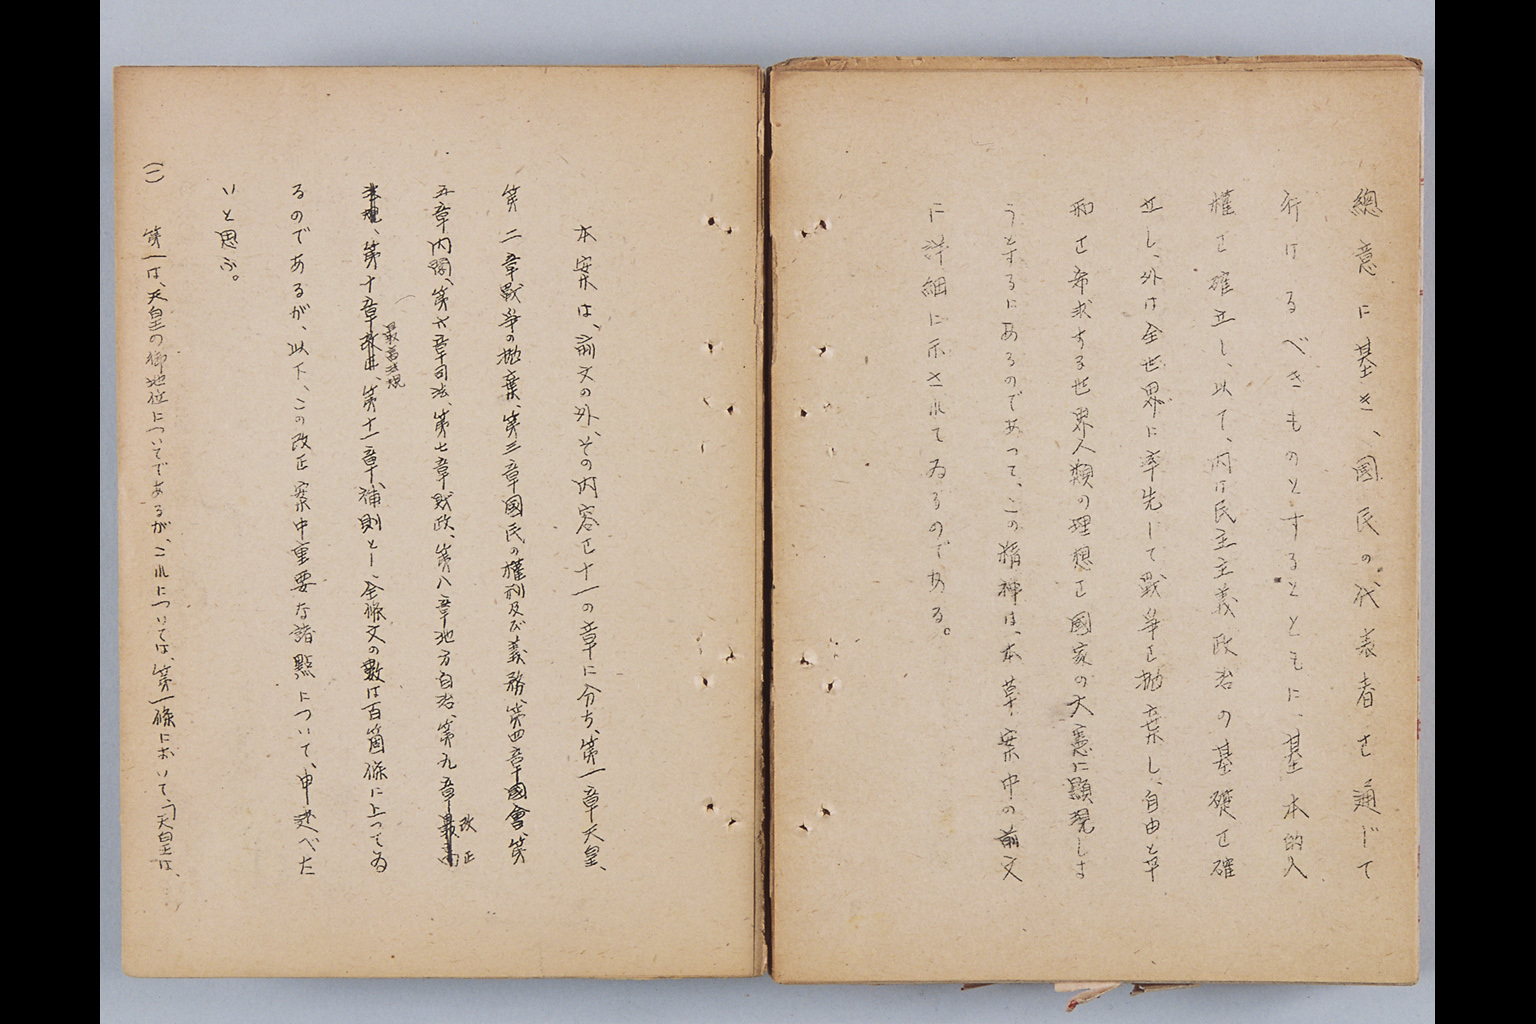 總意に基き、國民の代表者を通じて
行はるべきものとするとともに、基本的人
権を確立し、以て、内は民主主義政治の基礎を確
立し、外は全世界に率先して戰争を抛棄し、自由と平
和を希求する世界人類の理想を國家の大憲に顯現しよ
うとするにあるのであつて、この精神は、本草案中の前文
に詳細に示されてゐるのである。
本案は、前文の外、その内容を十一の章に分ち、第一章天皇、
第二章戰争の抛棄、第三章國民の權利及び義務、第四章國會、第
五章内閣、第六章司法、第七章財政、第八章地方自治、第九章最高
改正
法規、第十章改正、第十一章補則とし、全條文の數は百箇條に上つてゐ
最高法規
るのであるが、以下、この改正案中重要な諸點について、申述べた
いと思ふ。
(一) 第一は、天皇の御地位についてであるが、これについては、第一條において、「天皇は、